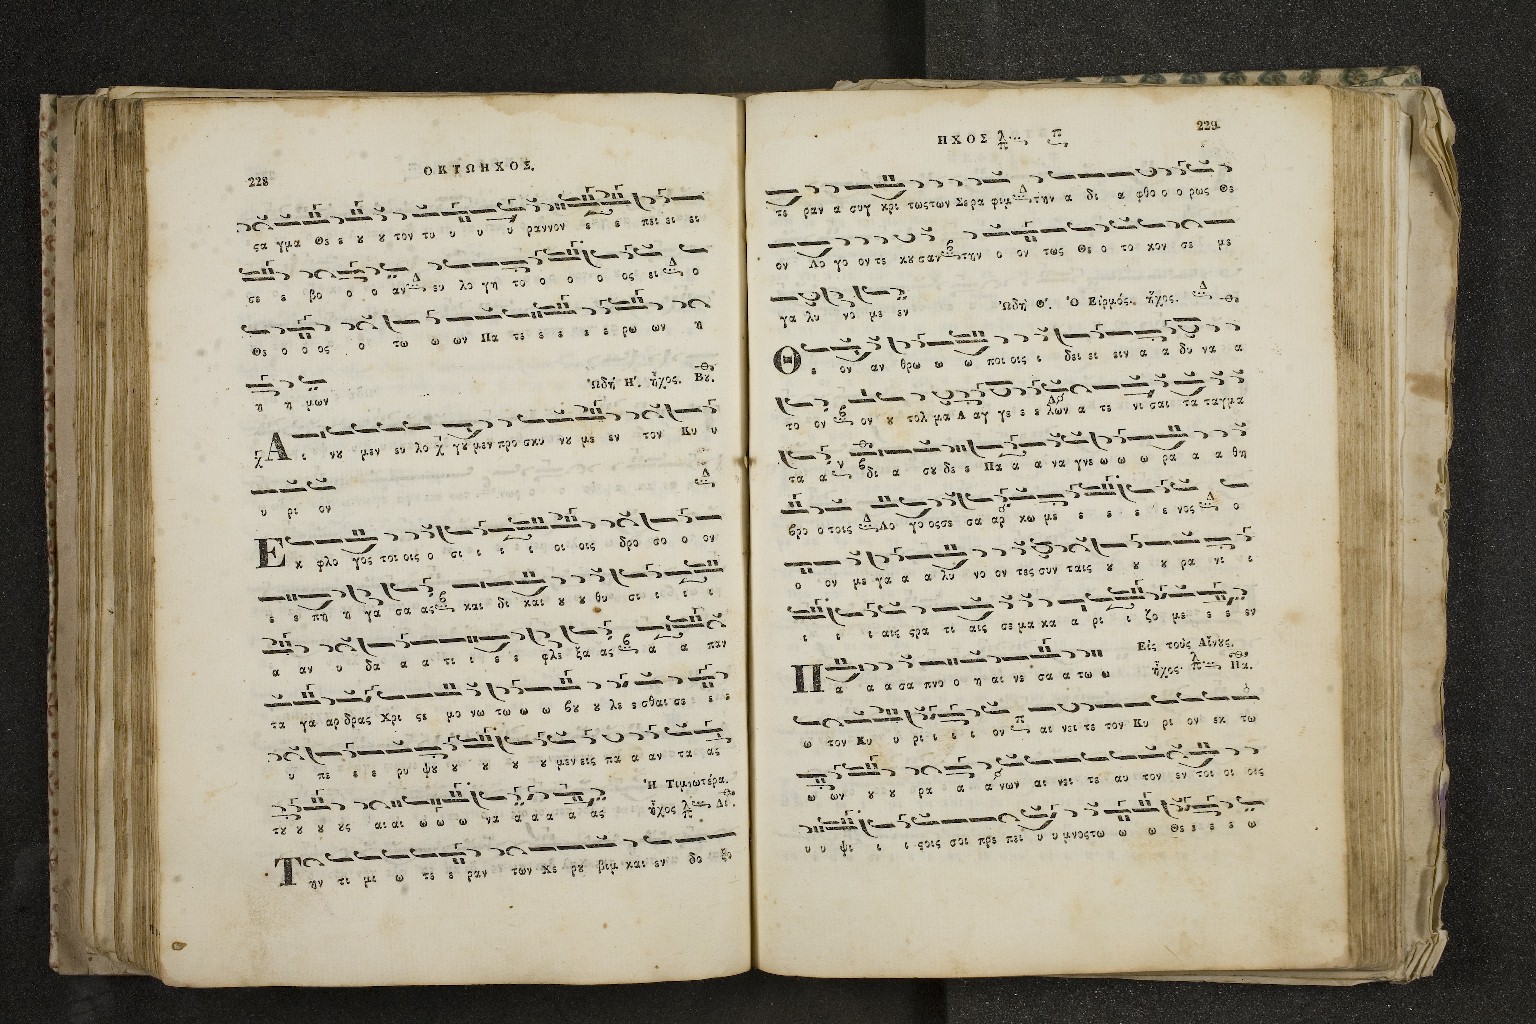 228
ΟΚΤΩΗΧΟΣ.
ϛα γμα Θε ε ȣ ȣ τον τυ υ υ υ ραννον ε ε πει ει ει
σε ε βο ο ο αν ευ λο γη το ο ο ο ος ει ο
Θε ο ο ος ο τω ω ων Πα τε ε ε ε ε ρω ων η
η η μων
Ὠδὴ Η΄. ἦχος. Βȣ.
Α ι νȣ μεν ευ λο γȣ μεν προ σκυ νȣ με εν τον Κυ υ
υ ρι ον
Ε κ φλο γος τοι οις ο σι ι ι ι οι οις δρο σο ο ον
ε ε πη η γα σα ας και δι και ȣ ȣ θυ σι ι ι ι
α αν υ δα α α τι ι ε ε φλε ξα ας α α παν
τα γα αρ δρας Χρι ϛε μο νω τω ω ω βȣ ȣ λε ε σθαι σε ε ε
υ πε ε ε ρυ ψȣ ȣ ȣ ȣ ȣ μεν εις πα α αν τα ας
τȣ ȣ ȣ ȣς αι αι ω ω ω να α α α α ας
Ἡ Τιμιωτέρα.
ἦχος
Τ ην τι μι ω τε ε ραν των Χε ρȣ βιμ και εν δο ξο
ΗΧΟΣ
229
τε ραν α συγ κρι τως των Σερα φιμ την α δι α φθο ο ο ρως Θε
ον Λο γο ον τε κȣ σαν την ο ον τως Θε ο το κον σε με
γα λυ νο με εν
Ὠδὴ Θ΄. Ὁ Εἱρμός. ἦχος.
Θ ε ον αν θρω ω ω ποι οις ι δει ει ειν α α δυ να α
το ον ον ȣ τολ μα Α αγ γε ε ε λων α τε νι σαι τα ταγμα
τα α δι α σȣ δε ε Πα α α να γνε ω ω ω ρα α α θη
βρο ο τοις Λο γο ος σε σα αρ κω με ε ε ε ε νος ο
ο ον με γα α α λυ νο ον τες συν ταις ȣ ȣ ȣ ρα νι ι
ι ι ι αις ϛρα τι αις σε μα κα α ρι ι ζο με ε ε εν
Εἰς τοὺς Αἴνȣς,
Π α α α σα πνο ο η αι νε σα α τω ω
ἦχος Πα.
ω τον Κυ υ ρι ι ι ι ον αι νει τε τον Κυ ρι ον εκ τω
ω ων ȣ ȣ ρα α α νων αι νει τε αυ τον εν τοι οι οις
υ υ ψι ι ι ϛοις σοι πρε πει υ υ μνος τω ω ω Θε ε ε ε ω